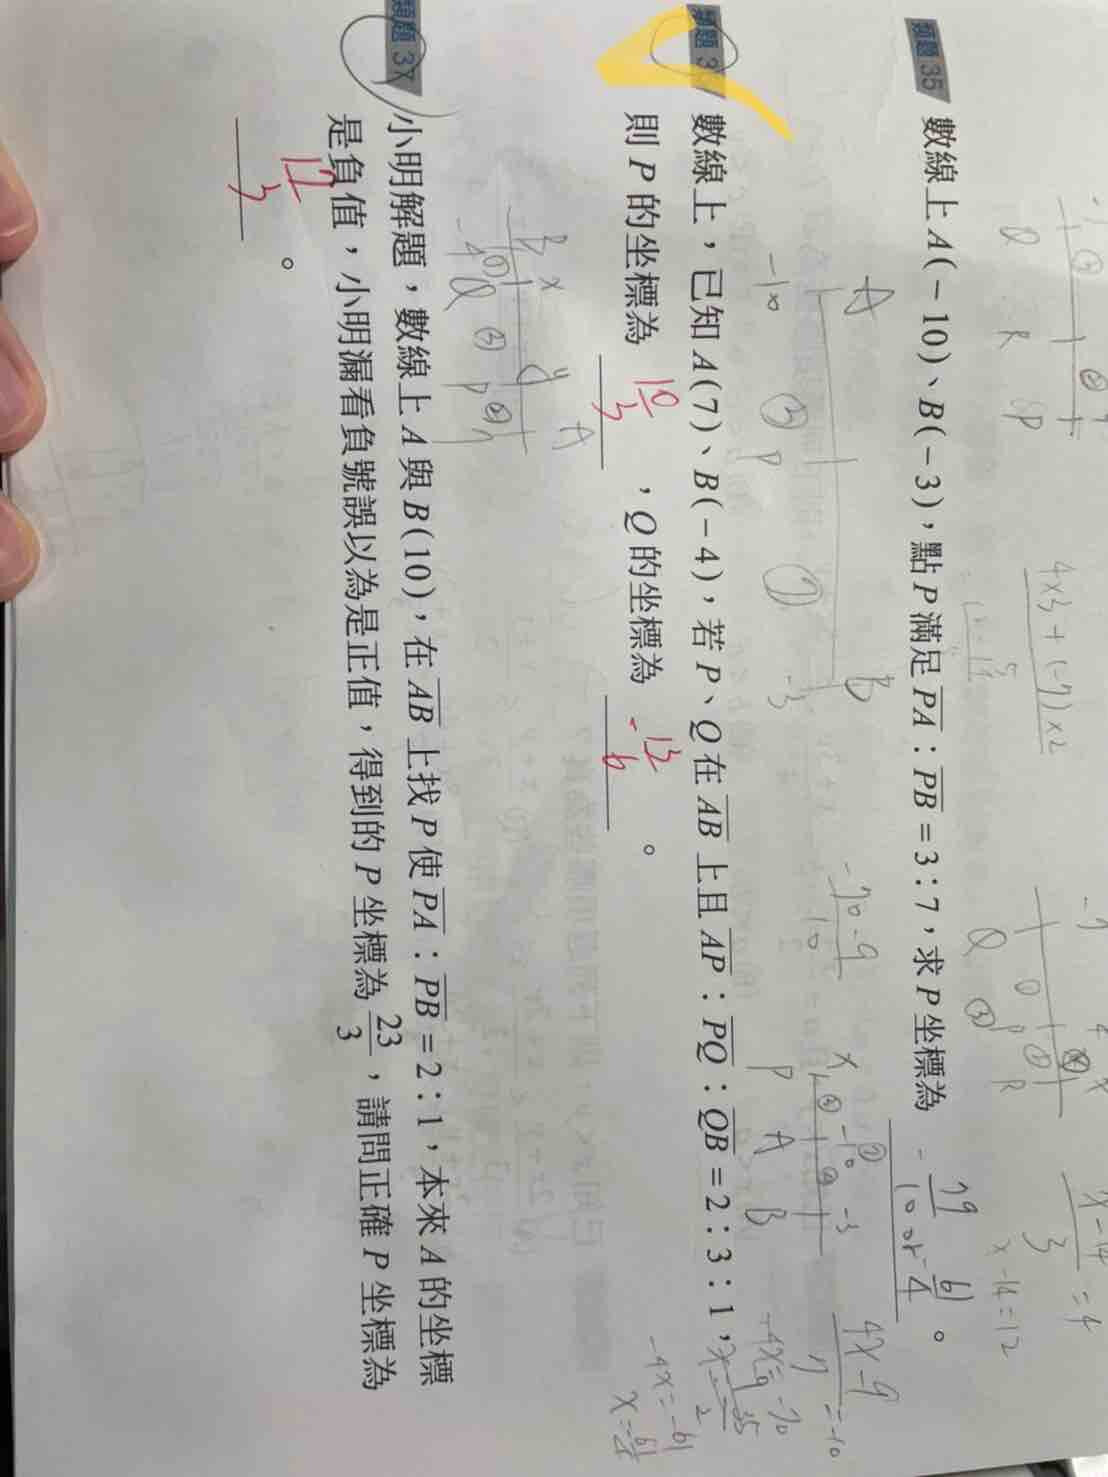 類題 35
數線上 A(-10)、B(-3),點 P 滿足 PA:PB=3:7,求 P 坐標為 -79/10 or -61/4 。
A B
-10 ③ P ⑦ -3
-70-9
P A B
4x-9
= -10
類題 3
數線上,已知 A(7)、B(-4),若 P、Q 在 AB 上且 AP:PQ:QB=2:3:1,
則 P 的坐標為 10/3 ,Q 的坐標為 -13/6 。
B x y A
-4 ① Q ③ P ② 7
-4x=-61
類題 37
小明解題,數線上 A 與 B(10),在 AB 上找 P 使 PA:PB=2:1,本來 A 的坐標
是負值,小明漏看負號誤以為是正值,得到的 P 坐標為 23/3,請問正確 P 坐標為
17/3 。
4×3+(-7)×2
x-14
3
=4
x-14=12